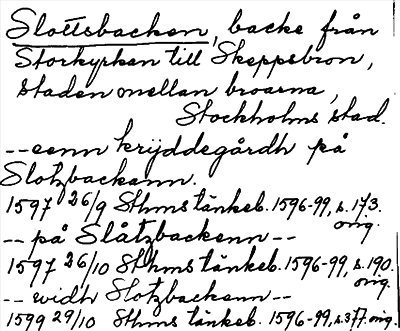 Slottsbacken, backe från
Storkyrkan till Skeppsbron,
staden mellan broarna,
Stockholms stad.
-- eenn krÿddegårdh på
Slotzbackann.
1597 26/9 Sthms tänkeb. 1596-99, s. 173.
orig.
-- på Slåtzbackenn --
1597 26/10 Sthms tänkeb. 1596-99, s. 190.
orig.
-- widh Slotzbackenn --
1599 29/10 Sthms tänkeb. 1596-99, s. 377. orig.